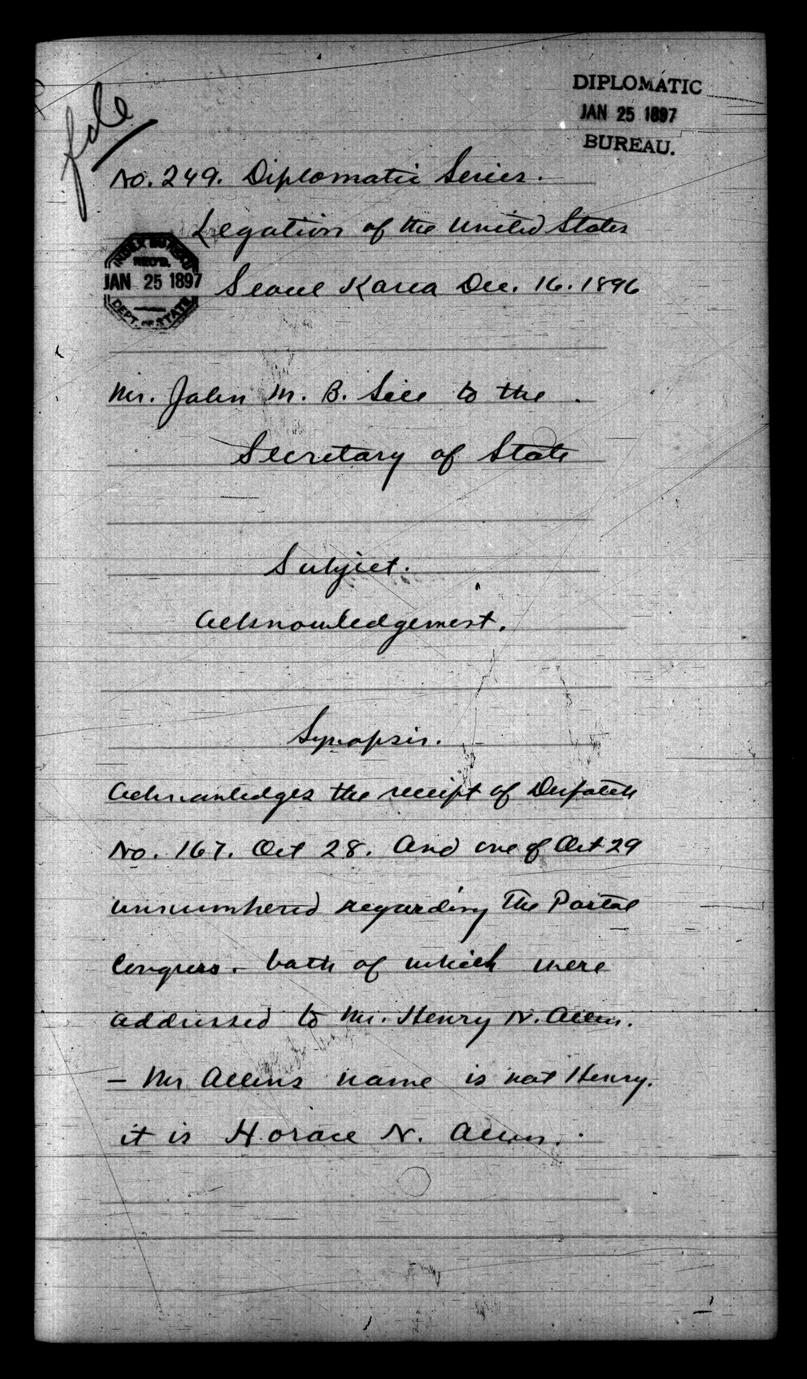 file
DIPLOMATIC
JAN 25 1897
BUREAU.
No. 249. Diplomatic Series.
Legation of the United States
INDEX BUREAU
REC'D.
JAN 25 1897
DEPT. OF STATE
Seoul Korea Dec. 16. 1896
Mr. John M. B. Sill to the
Secretary of State
Subject.
Acknowledgement.
Synopsis.
Acknowledges the receipt of Despatch
No. 167. Oct 28. And one of Oct 29
unnumbered regarding The Postal
Congress - both of which were
addressed to Mr. Henry N. Allen.
- Mr Allens name is not Henry.
it is Horace N. Allen.